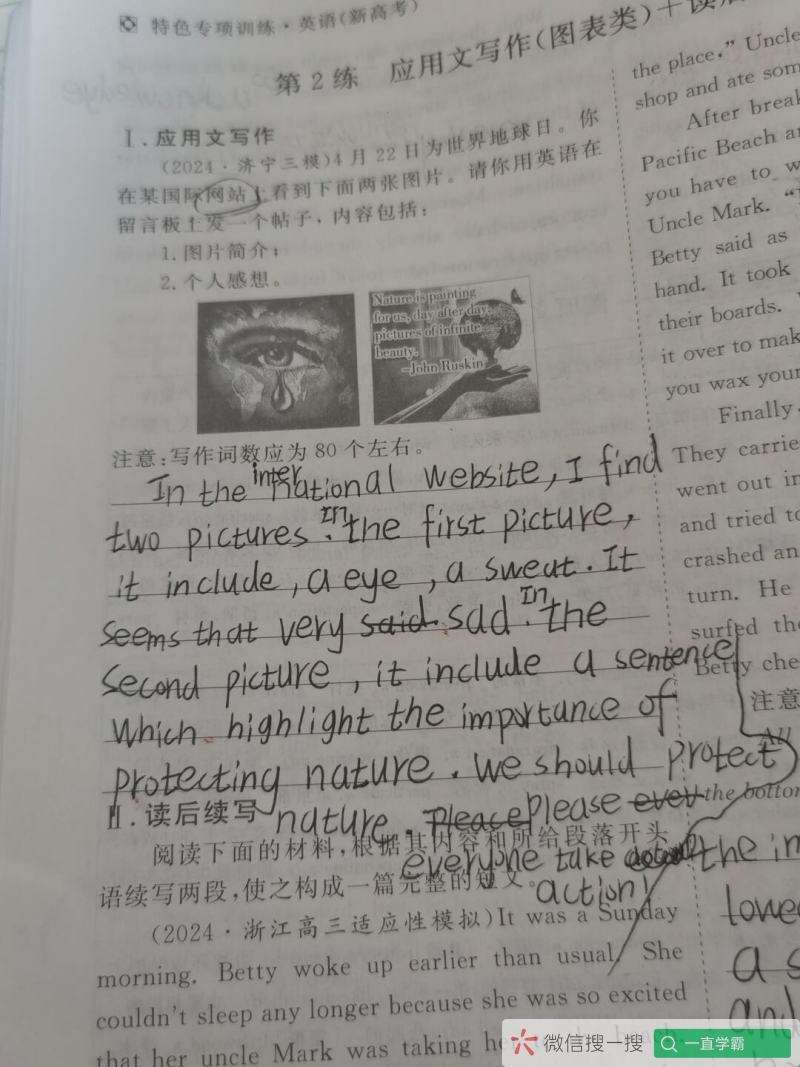 特色专项训练·英语(新高考)
第2练 应用文写作(图表类)+读后
Ⅰ.应用文写作
(2024·济宁三模)4月22日为世界地球日。你
在某国际网站上看到下面两张图片。请你用英语在
留言板上发一个帖子,内容包括:
1.图片简介;
2.个人感想。
Nature is painting
for us, day after day,
pictures of infinite
beauty.
–John Ruskin
注意:写作词数应为80个左右。
In the international website, I find
two pictures. In the first picture,
it include, a eye, a sweat. It
seems that very said. sad. In the
second picture, it include a sentence
which highlight the importance of
protecting nature. We should protect
nature. Please Please ever
everyone take the
action!
Ⅱ.读后续写
阅读下面的材料,根据其内容和所给段落开头
语续写两段,使之构成一篇完整的短文。
(2024·浙江高三适应性模拟)It was a Sunday
morning. Betty woke up earlier than usual. She
couldn't sleep any longer because she was so excited
that her uncle Mark was taking her
the place,” Uncle
shop and ate som
After break
Pacific Beach a
you have to w
Uncle Mark. “
Betty said as
hand. It took
their boards.
it over to mak
you wax your
Finally,
They carrie
went out in
and tried to
crashed an
turn. He
surfed the
Betty che
注意
All
the bottom
the im
loved
a s
and
微信搜一搜
一直学霸